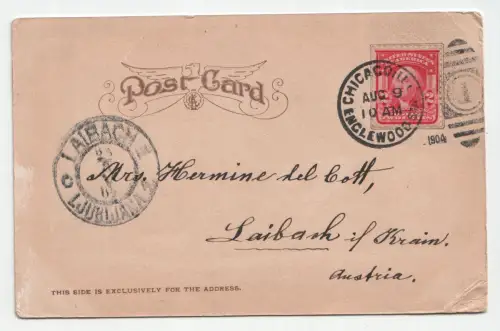 Post Card
UNITED STATES
OF AMERICA
CHICAGO, ILL.
AUG 9
10 AM
ENGLEWOOD
1
1904
LAIBACH
LJUBLJANA
Mrs. Hermine del Cott,
Laibach i/ Krain.
Austria.
THIS SIDE IS EXCLUSIVELY FOR THE ADDRESS.